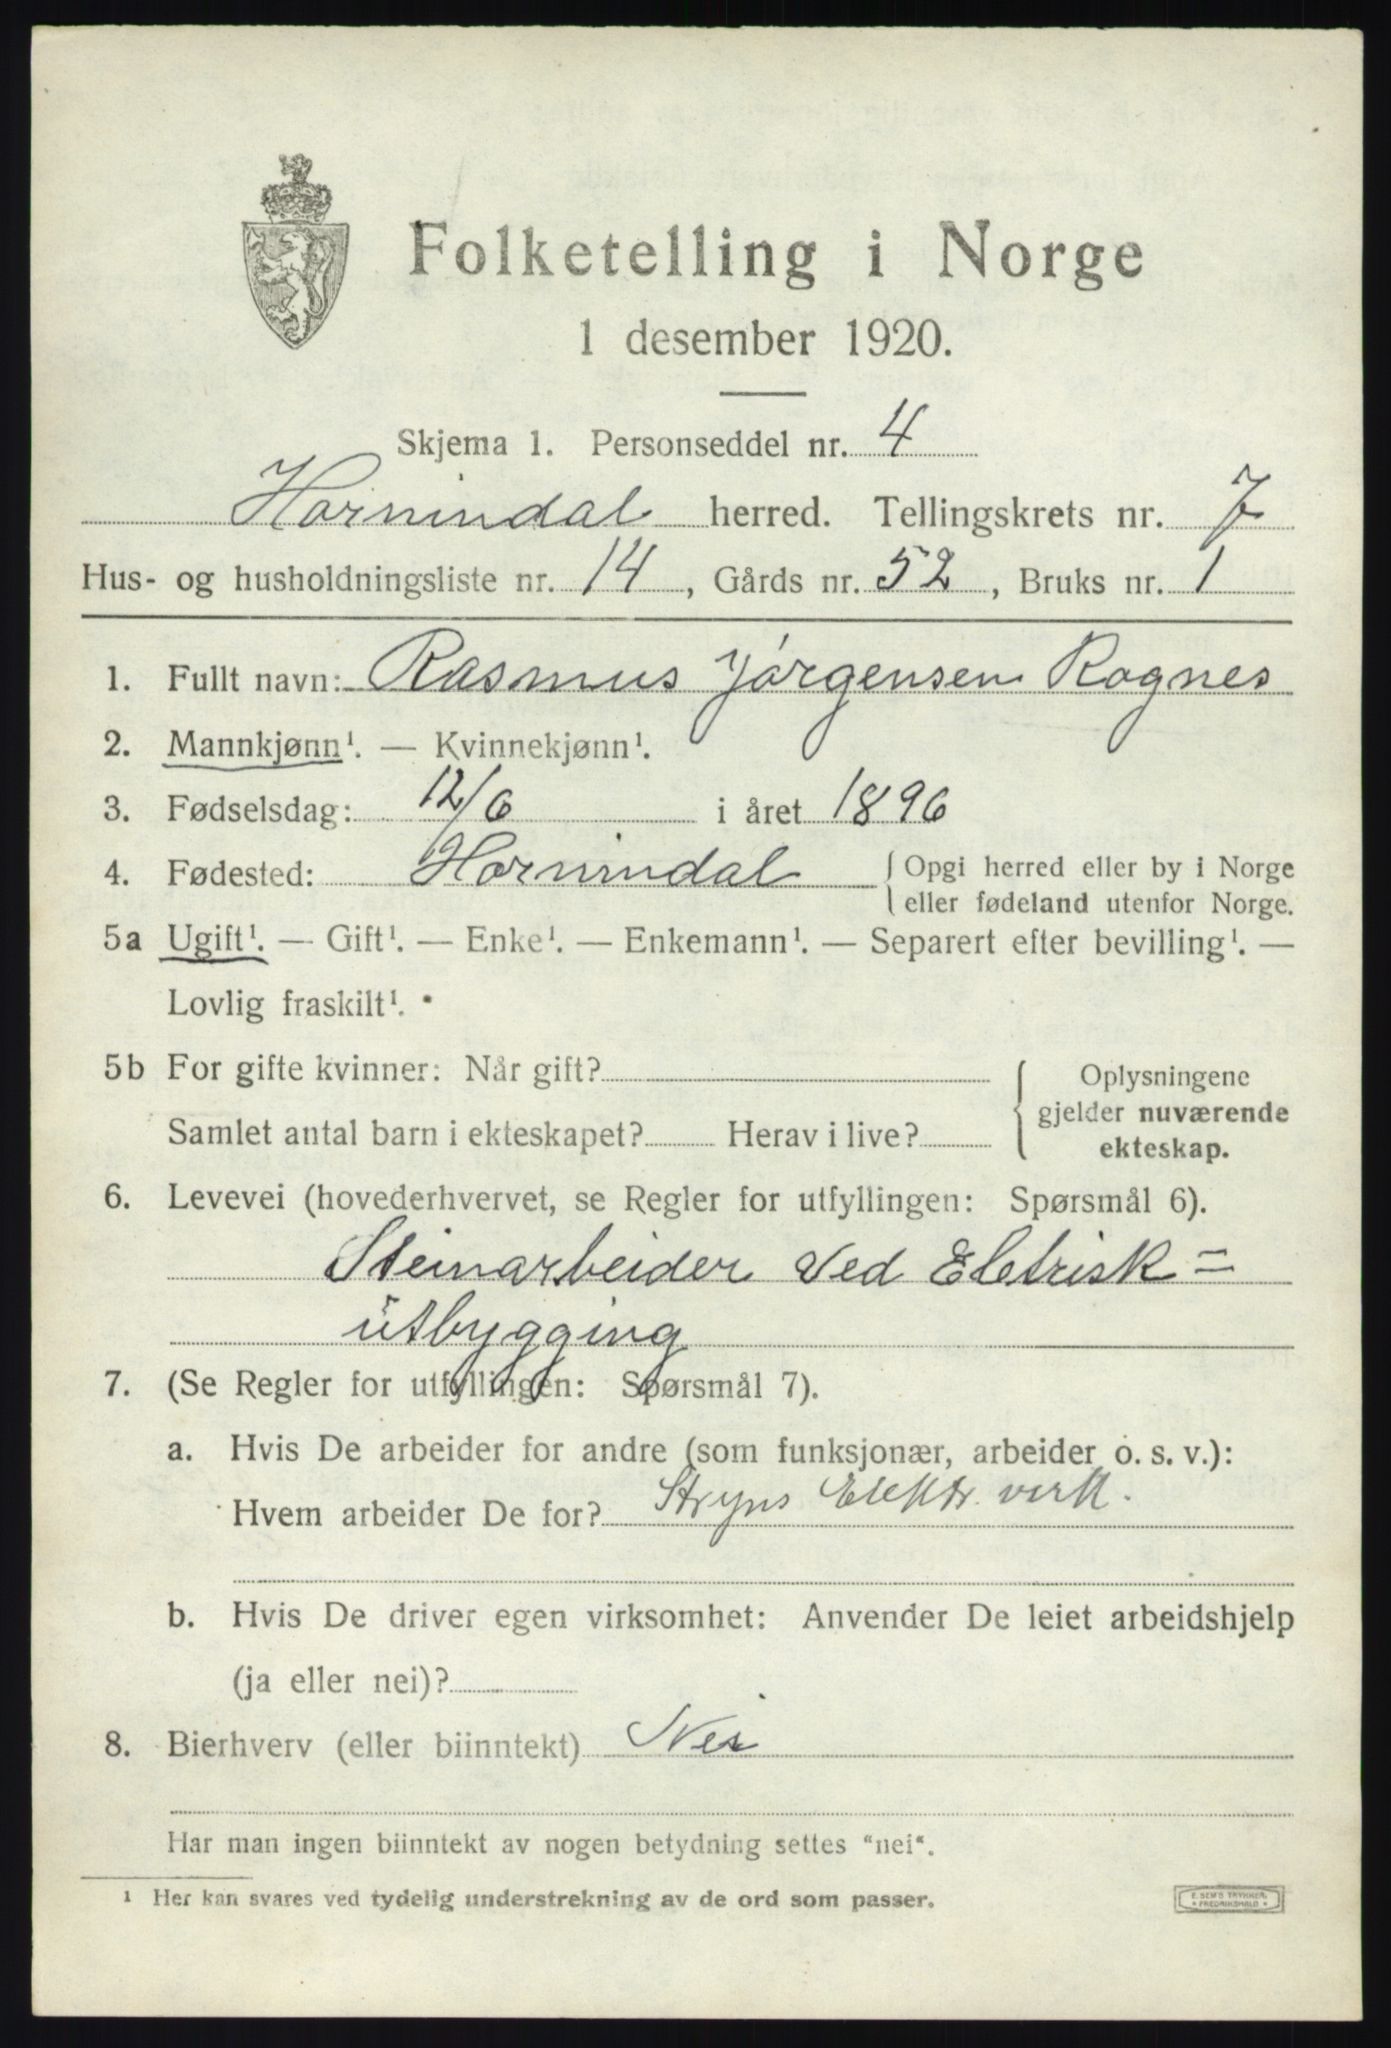 Folketelling i Norge
1 desember 1920.
Skjema 1. Personseddel nr. 4
Hornindal herred. Tellingskrets nr. 7
Hus- og husholdningsliste nr. 14, Gårds nr. 52, Bruks nr. 1
1. Fullt navn: Rasmus Jörgensen Rognes
2. Mannkjønn¹. — Kvinnekjønn¹.
3. Fødselsdag: 12/6 i året 1896
4. Fødested: Hornindal { Opgi herred eller by i Norge
eller fødeland utenfor Norge.
5a Ugift¹. — Gift¹. — Enke¹. — Enkemann¹. — Separert efter bevilling¹. —
Lovlig fraskilt¹.
5b For gifte kvinner: Når gift? { Oplysningene
gjelder nuværende
Samlet antal barn i ekteskapet? Herav i live?
ekteskap.
6. Levevei (hovederhvervet, se Regler for utfyllingen: Spørsmål 6).
Steinarbeider ved Eletrisk=
utbygging
7. (Se Regler for utfyllingen: Spørsmål 7).
a. Hvis De arbeider for andre (som funksjonær, arbeider o. s. v.):
Hvem arbeider De for? Stryns Elektr. verk.
b. Hvis De driver egen virksomhet: Anvender De leiet arbeidshjelp
(ja eller nei)?
8. Bierhverv (eller biinntekt) Nei
Har man ingen biinntekt av nogen betydning settes "nei".
¹ Her kan svares ved tydelig understrekning av de ord som passer.
E. SEM'S TRYKKERI
FREDRIKSHALD